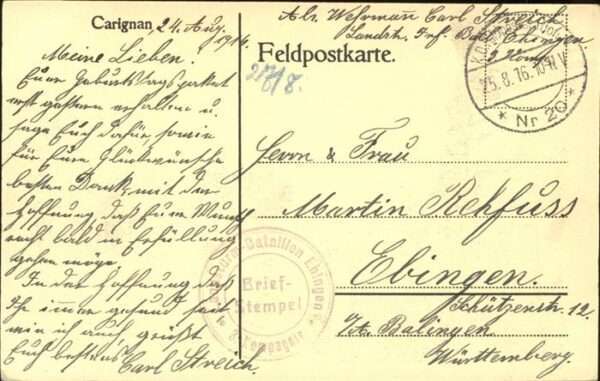 Carignan 24. Aug.
1916.
Meine Lieben.
Euer Geburtstagspaket
erst gestern erhalten u.
sage Euch dafür, sowie
für Eure Glückwünsche
besten Dank, mit der
Hoffnung, daß Euer Wunsch
recht bald in Erfüllung
gehen möge.
In der Hoffnung daß
Ihr immer gesund seit
was ich auch, grüßt
Euch bestens
Carl Streich.
Abs. Wehrmann Carl Streich
Landst. Inf. Batl. Ehingen
3 Komp.
Feldpostkarte.
25.8.16.
* Nr 20 *
Herrn & Frau
Martin Rehfuss
Ebingen.
Schützenstr. 12.
O/A. Balingen
Württemberg.
Bataillon Ehingen
Brief-
Stempel
3. Kompagnie